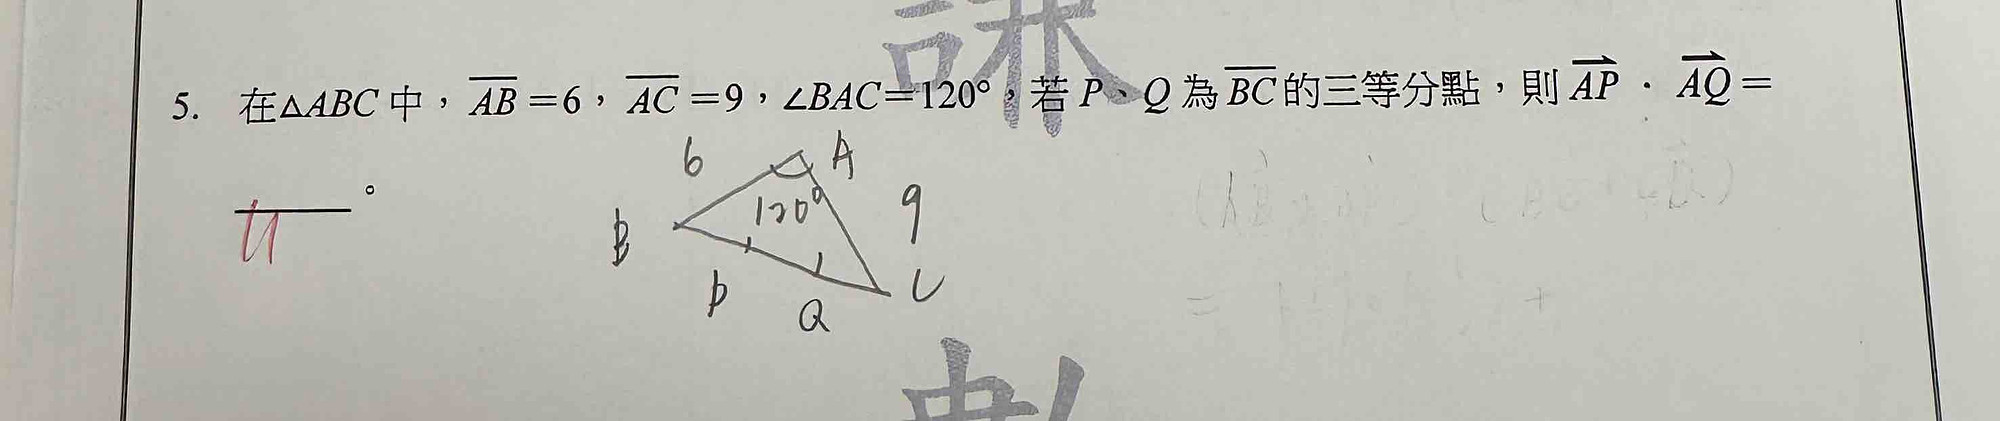 謙
5. 在△ABC中，AB=6，AC=9，∠BAC=120°，若P、Q為BC的三等分點，則AP．AQ=
____。
11
6 A
120° 9
B
P Q C